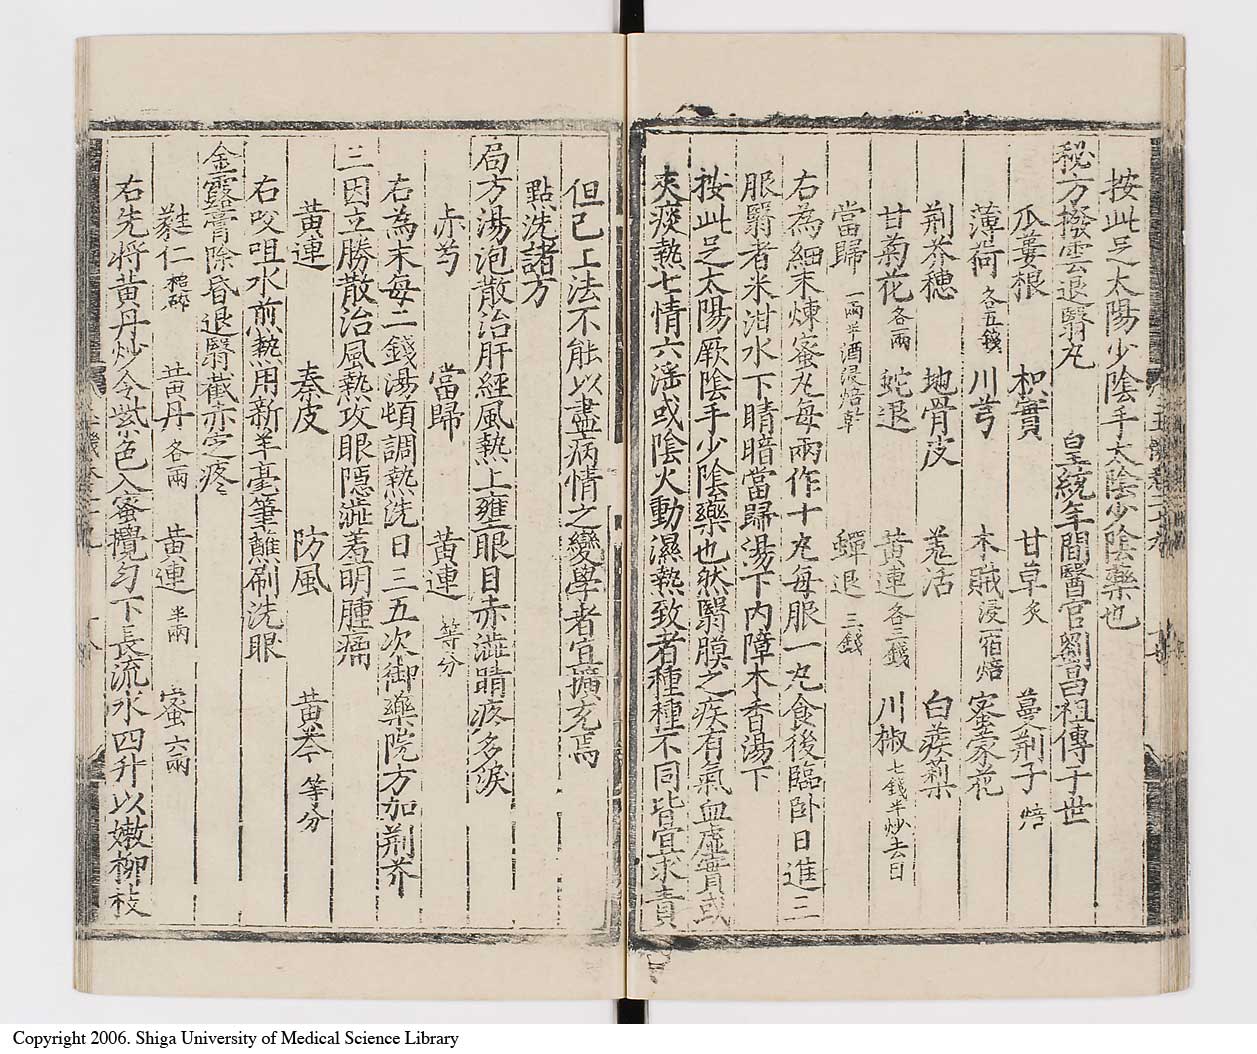 按此足太陽少陰手太陰少陰藥也
秘方撥雲退翳丸 皇統年間醫官劉昌祖傳于世
瓜蔞根 枳實 甘草炙 蔓荆子焙
薄荷各五錢 川芎 木賊浸一宿焙 蜜蒙花
荆芥穂 地骨皮 羗活 白蒺䔧
甘菊花各兩 蛇退 黄連各三錢 川椒七錢半炒去目
當歸一兩半酒浸焙乾 蟬退三錢
右為細末煉蜜丸每兩作十丸每服一丸食後臨卧日進二
服翳者米泔水下睛暗當歸湯下内障木香湯下
按此足太陽厥陰手少陰藥也然翳膜之疾有氣血虛實或
夾痰熱七情六淫或陰火動濕熱致者種種不同皆宜求責
但已上法不能以盡病情之變學者宜擴充焉
點洗諸方
局方湯泡散治肝經風熱上壅眼目赤澁睛疼多淚
赤芍 當歸 黄連等分
右為末每二錢湯頓調熱洗日三五次御藥院方加荆芥
三因立勝散治風熱攻眼隱澁羞明腫痛
黄連 秦皮 防風 黄芩等分
右㕮咀水煎熱用新羊毫筆蘸刷洗眼
金露膏除昏退翳截赤定疼
蕤仁搥碎 黄丹各兩 黄連半兩 蜜六兩
右先将黄丹炒令紫色入蜜攪匀下長流水四升以嫩柳枝
Copyright 2006. Shiga University of Medical Science Library